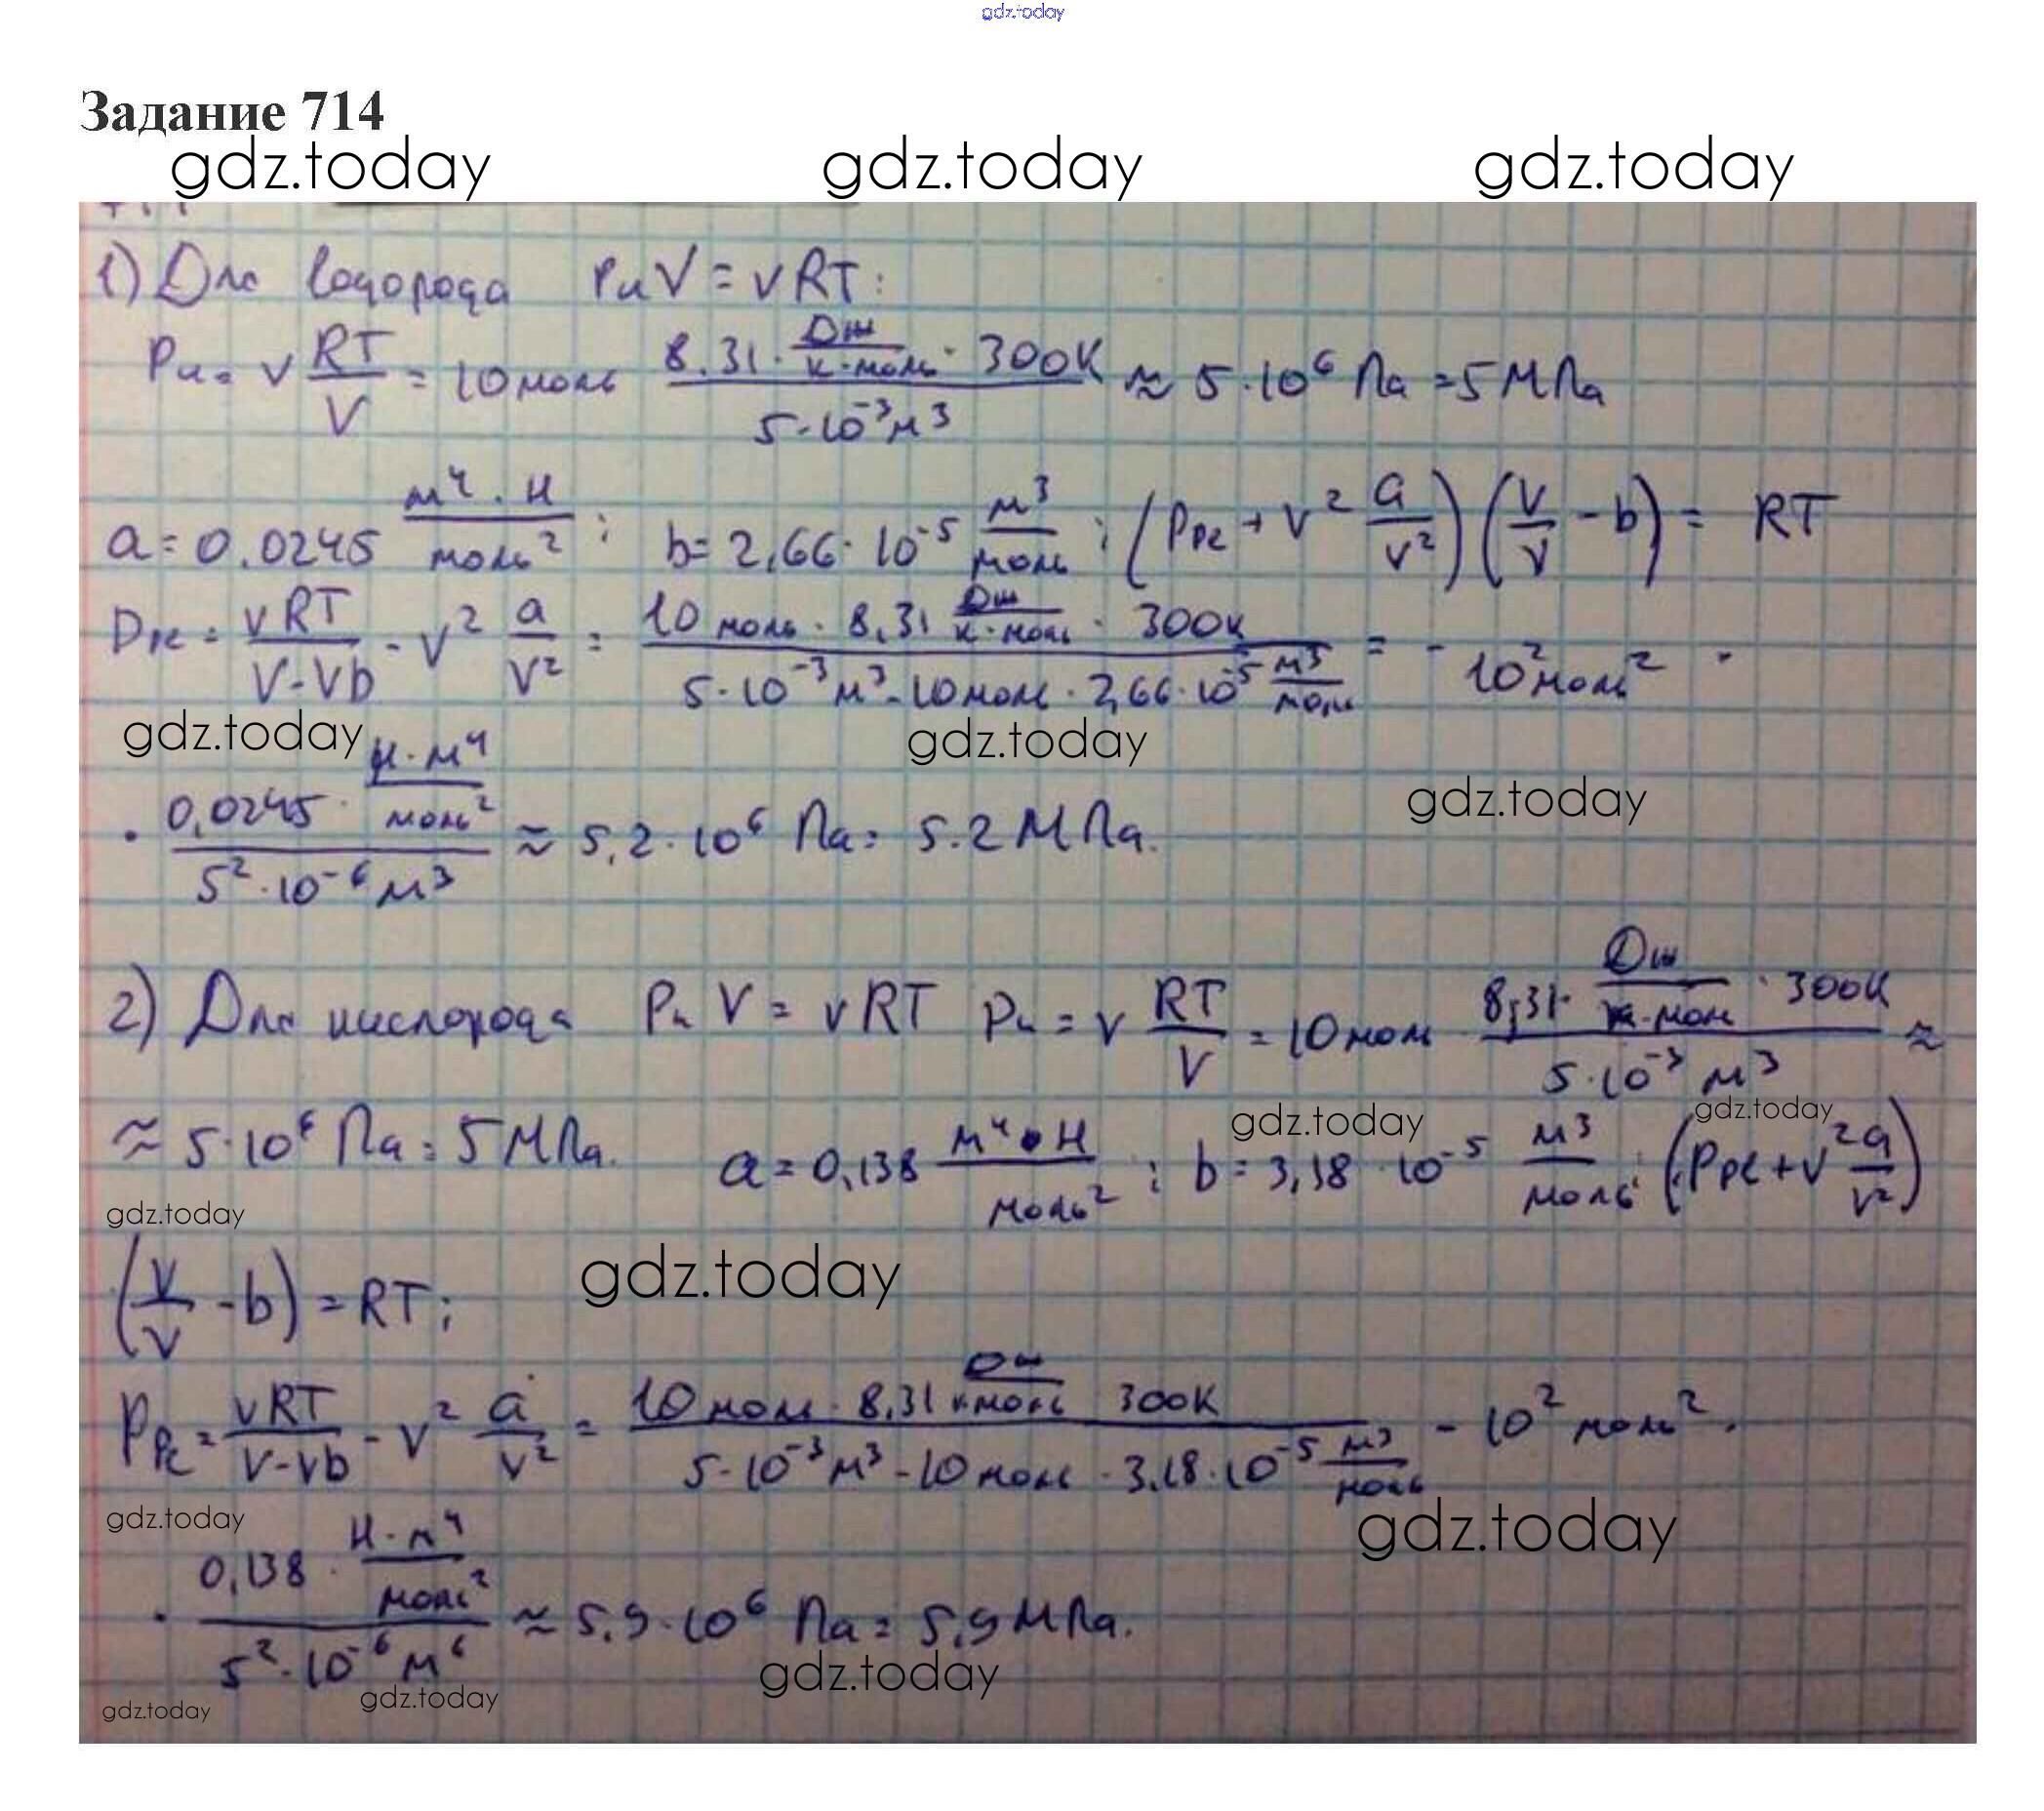 gdz.today
Задание 714
gdz.today gdz.today gdz.today
1) Для водорода PиV = νRT:
Pи = ν RT/V = 10 моль 8.31 · Дж/К·моль · 300К / 5·10⁻³м³ ≈ 5·10⁶ Па = 5 МПа
a = 0.0245 м⁴·Н/моль² ; b = 2,66·10⁻⁵ м³/моль ; (Pре + ν² a/V²)(V/ν - b) = RT
Pре = νRT/V-νb - ν² a/V² = 10 моль · 8,31 Дж/К·моль · 300К / 5·10⁻³м³ - 10 моль · 2,66·10⁻⁵ м³/моль = - 10²моль² ·
gdz.today gdz.today
gdz.today
· 0,0245 · Н·м⁴/моль² / 5²·10⁻⁶м³ ≈ 5,2·10⁶ Па = 5.2 МПа.
2) Для кислорода Pи V = νRT Pи = ν RT/V = 10 моль 8,31· Дж/К·моль · 300К / 5·10⁻³ м³ ≈
gdz.today gdz.today
≈ 5·10⁶ Па = 5 МПа. a = 0,138 м⁴·Н/моль² ; b = 3,18 · 10⁻⁵ м³/моль ; (Pре + ν² a/V²)
gdz.today
gdz.today
(V/ν - b) = RT;
Pре = νRT/V-νb - ν² a/V² = 10 моль · 8,31 Дж/К·моль 300К / 5·10⁻³м³ - 10 моль · 3,18·10⁻⁵ м³/моль - 10² моль² ·
gdz.today gdz.today
· 0,138 · Н·м⁴/моль² / 5²·10⁻⁶м⁶ ≈ 5,9·10⁶ Па = 5,9 МПа.
gdz.today
gdz.today gdz.today